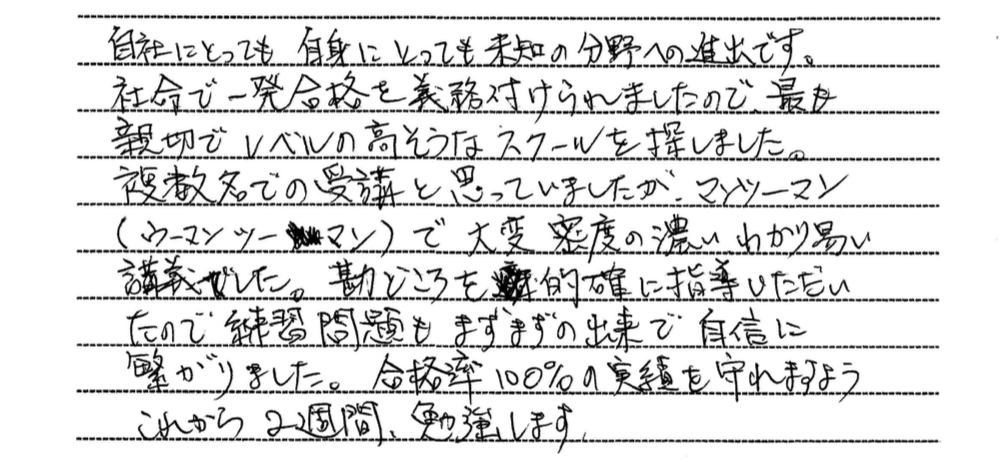 自社にとっても 自身にとっても未知の分野への進出です。
社命で一発合格を義務付けられましたので、最も
親切でレベルの高そうなスクールを探しました。
複数名での受講と思っていましたが、マンツーマン
(ウーマンツーマン)で大変密度の濃いわかり易い
講義でした。勘どころを的確に指導いただい
たので練習問題もまずまずの出来で自信に
繋がりました。合格率100%の実績を守れますよう
これから2週間、勉強します。